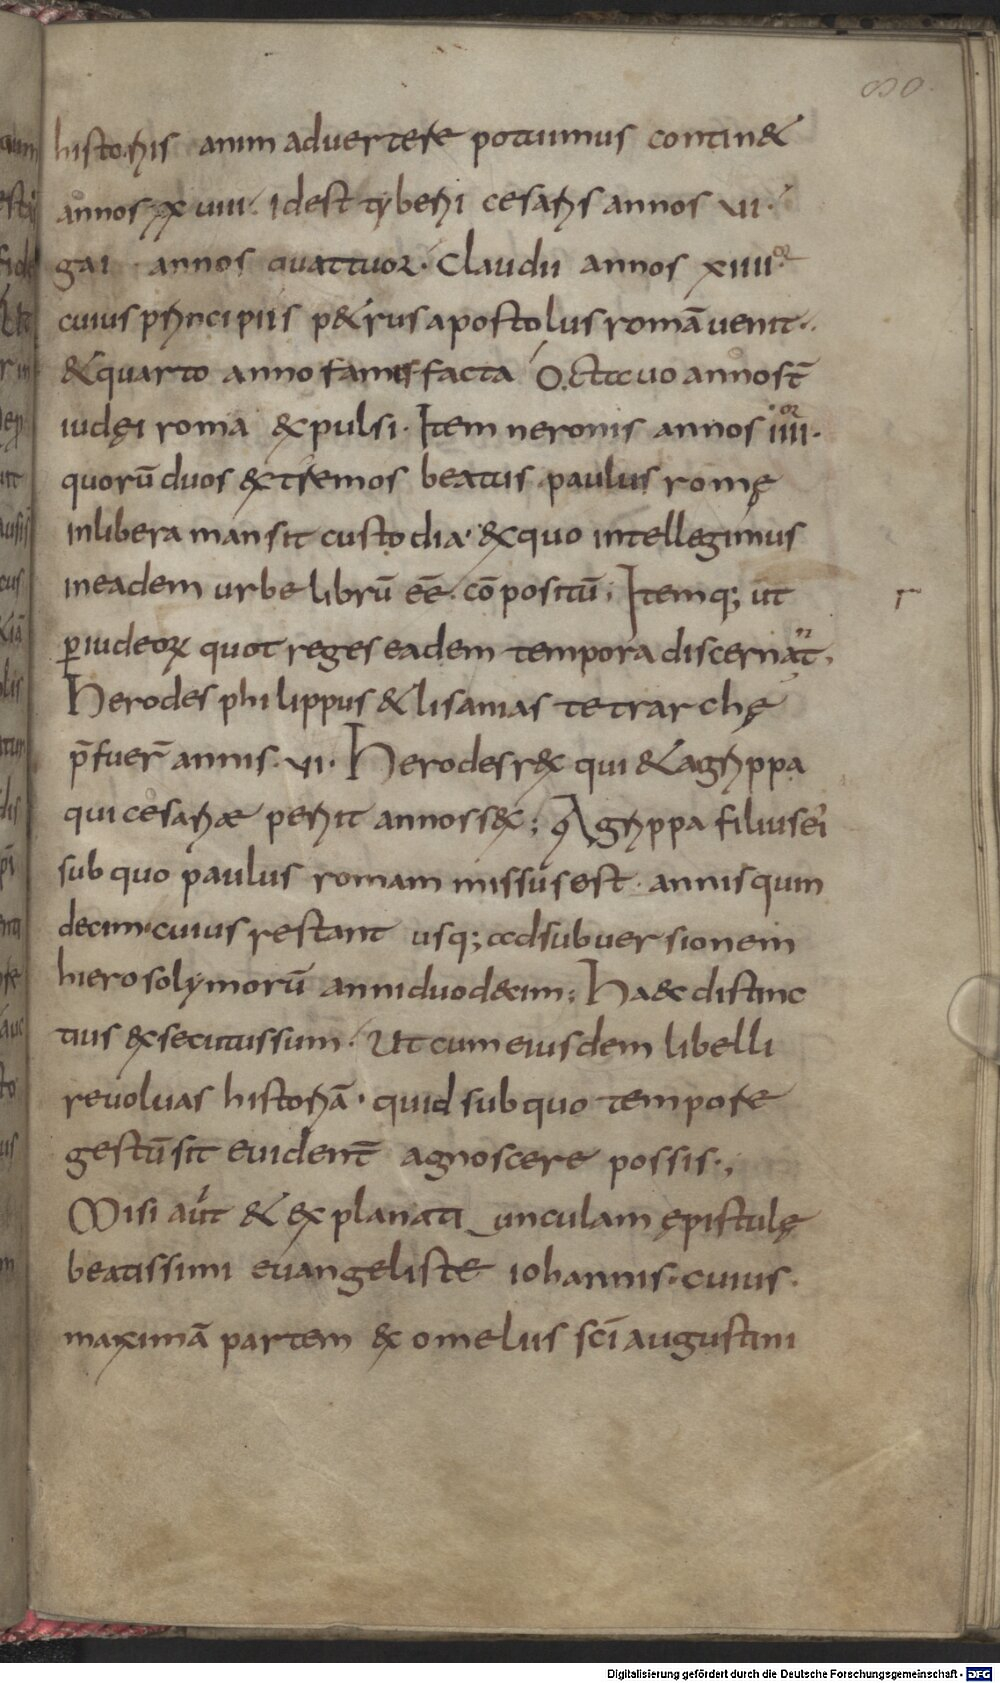 80.
historiis animaduertere potuimus contin&
annos xxuiiii. Idest tyberii cesaris annos ui.
gai annos quattuor. Claudii annos xiiii.
cuius principiis p&rus apostolus romā uenit.
&quarto anno famis facta Octauo anno st̄
iudęi roma expulsi. Item neronis annos iiii.
quorū duos extremos beatus paulus romę
inlibera mansit custodia. exquo intellegimus
ineadem urbe librū eē. cōpositū; Itemq; ut
ꝑiudeoꝝ quot reges eadem tempora discernat.
Herodes philippus & lisanias tetrarchę
p̄fuer̄ annis. ui. Herodes rex qui & agrippa
qui cesariæ periit annos sex; Agrippa filius ei
sub quo paulus romam missus est. annis quin
decim. cuius restant usq; adsubuersionem
hierosolymorū anni duodecim; Haec distinc
tius exsecutus sum. Ut cum eiusdem libelli
reuoluas historiā. quid sub quo tempore
gestū sit euident̄ agnoscere possis.,
Misi aut & explanatiunculam ępistulę
beatissimi euangeliste iohannis. cuius.
maximā partem ex omeliis sc̄i augustini
Digitalisierung gefördert durch die Deutsche Forschungsgemeinschaft - DFG